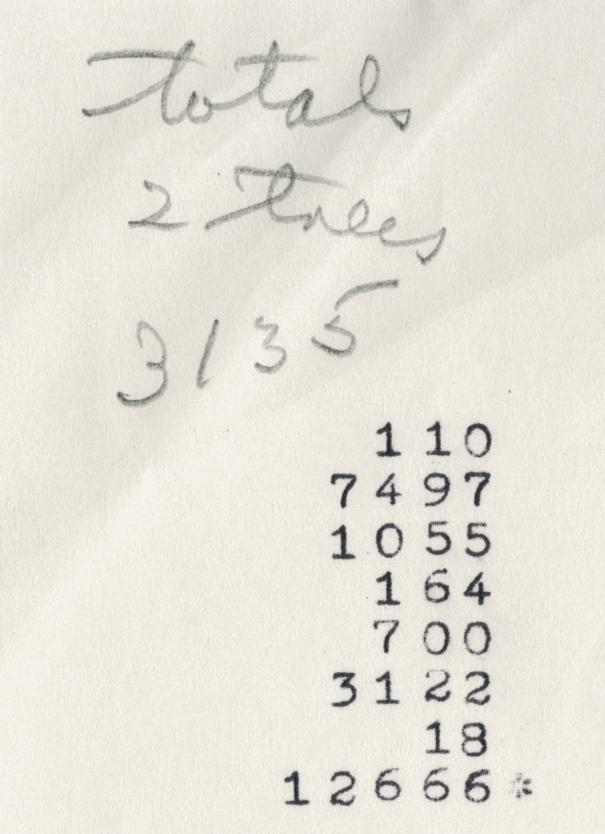 totals
2 trees
3135
1 10
74 97
10 55
1 64
7 00
31 22
18
126 66 *